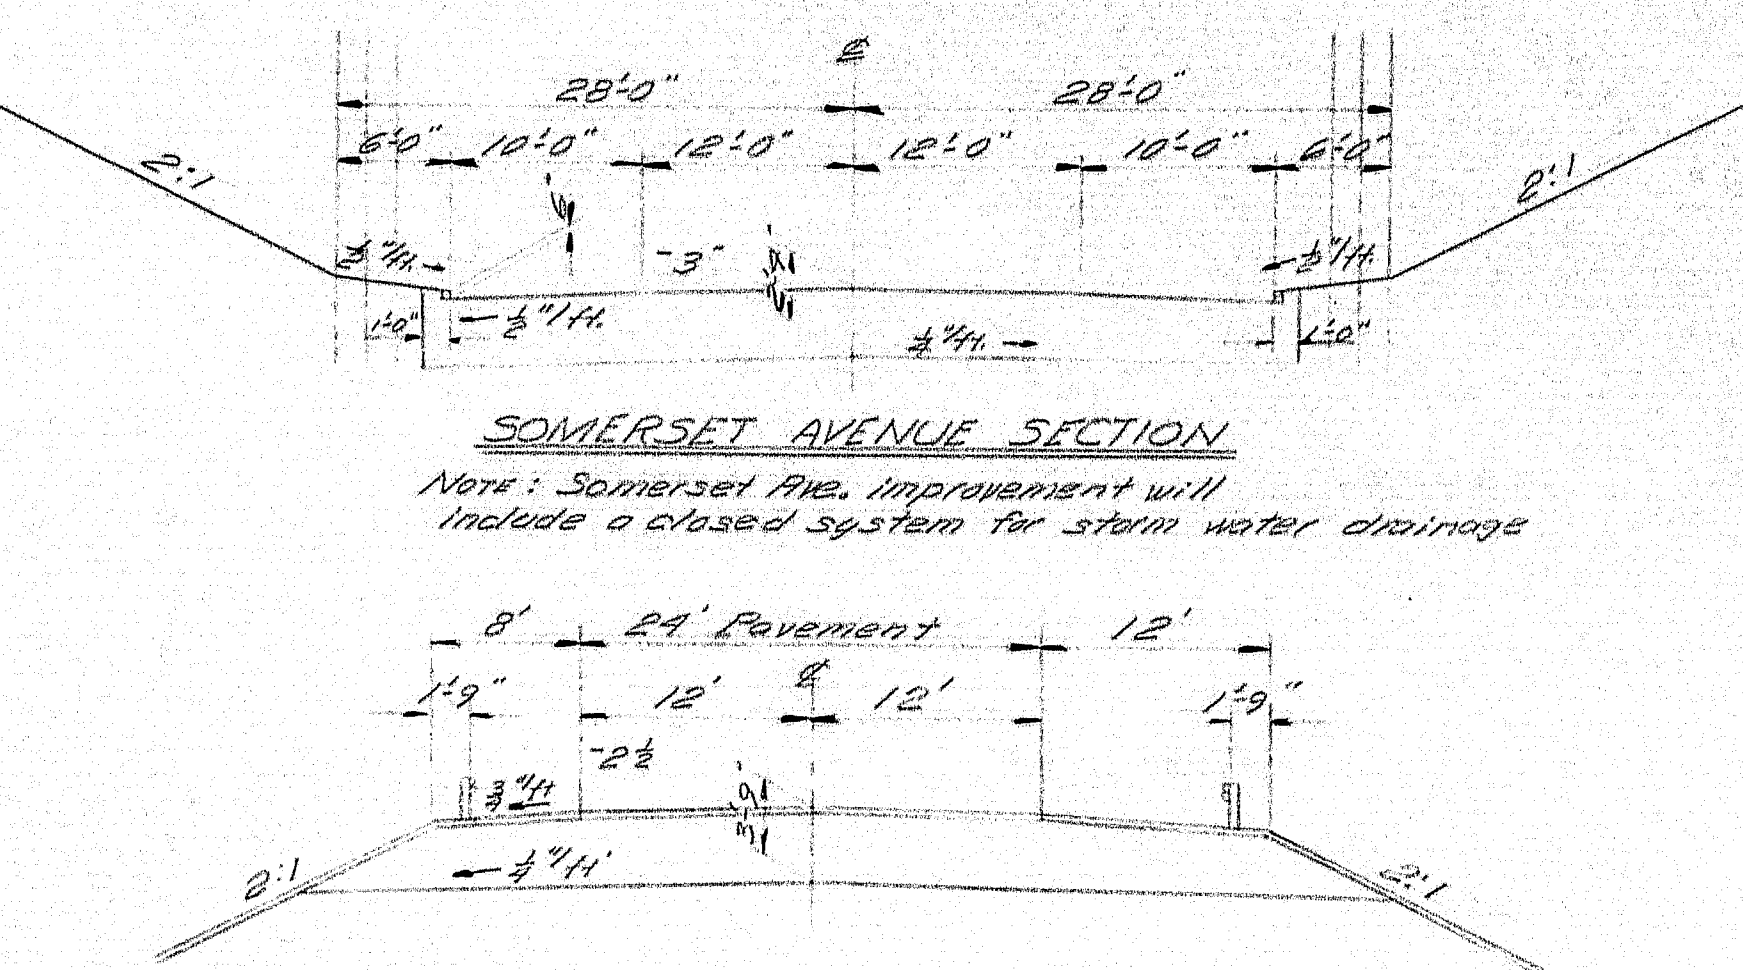 ℄
28'-0" 28'-0"
6'-0" 10'-0" 12'-0" 12'-0" 10'-0" 6'-0"
2:1 2:1
6"
1/2"/ft. -3" 1/2"/ft.
1'-0" 1/2"/ft. 1/4"/ft. 1'-0"
SOMERSET AVENUE SECTION
NOTE: Somerset Ave. improvement will
include a closed system for storm water drainage
8' 24' Pavement 12'
℄
1'-9" 12' 12' 1'-9"
-2 1/2
3/4"/ft
1/4"/ft'
2:1 2:1